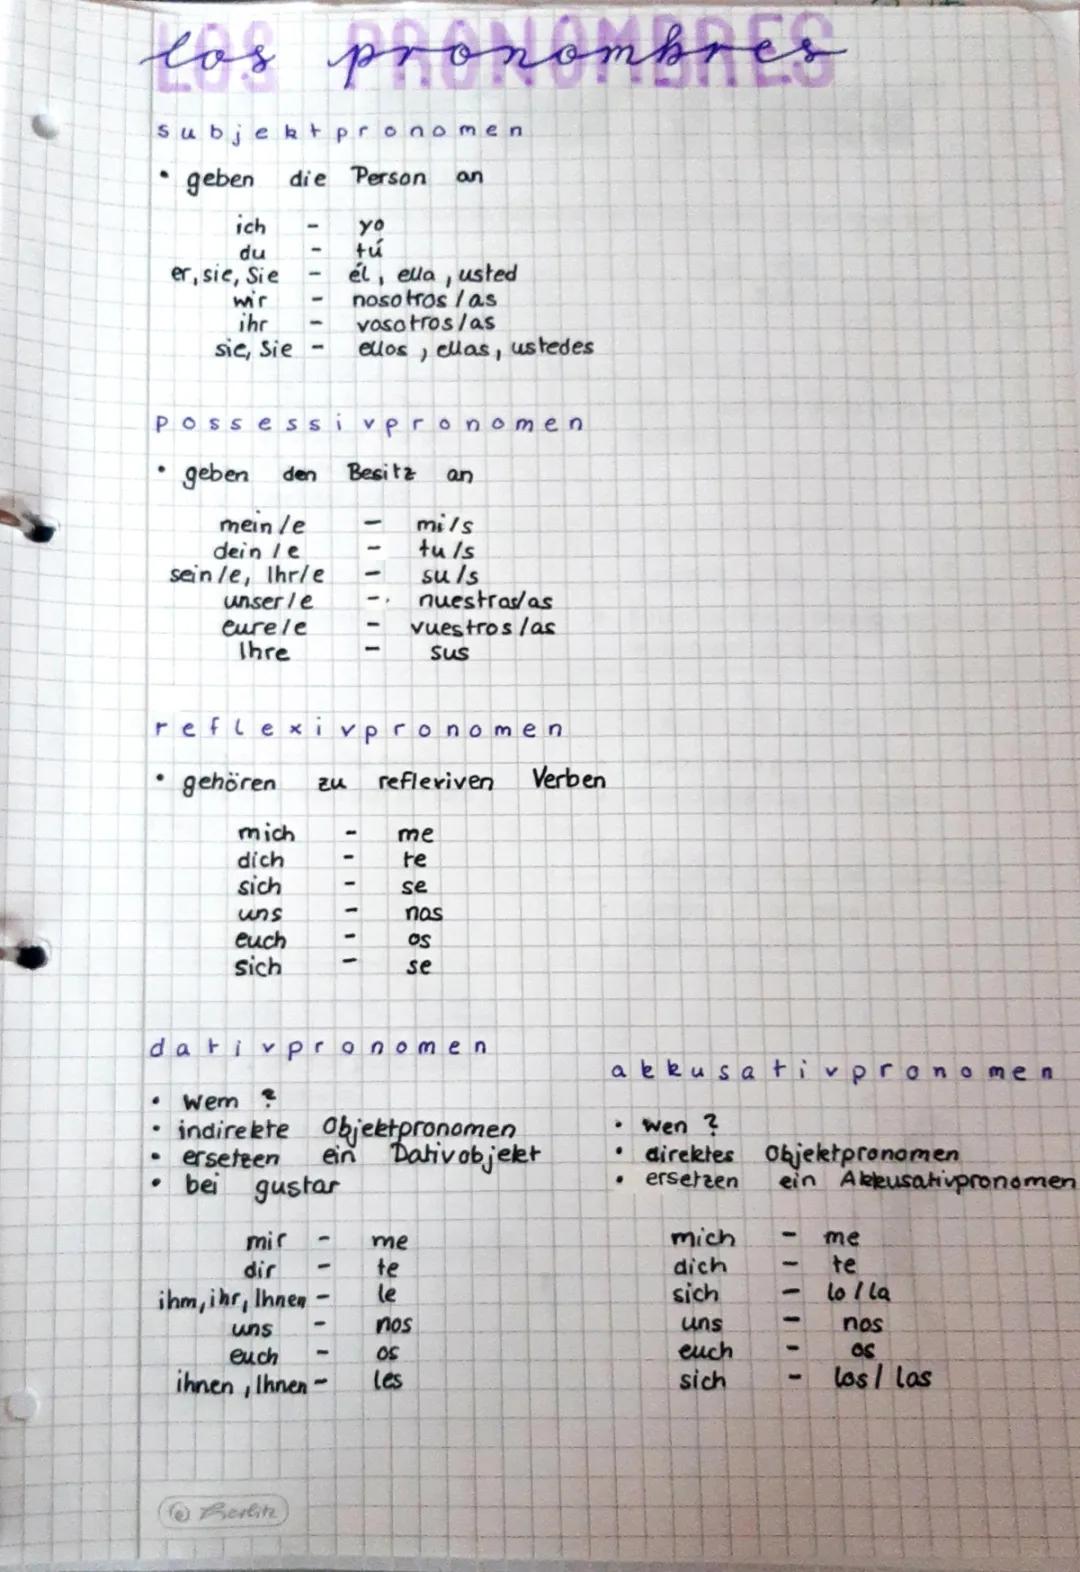 LOS PRONOMBRES
los pronombres
subjektpronomen
• geben die Person an
ich - yo
du - tú
er, sie, Sie - él, ella, usted
wir - nosotros/as
ihr - vosotros/as
sie, Sie - ellos, ellas, ustedes
possessivpronomen
• geben den Besitz an
mein/e - mi/s
dein/e - tu/s
sein/e, Ihr/e - su/s
unser/e - nuestros/as
eure/e - vuestros/as
Ihre - sus
reflexivpronomen
• gehören zu reflexiven Verben
mich - me
dich - te
sich - se
uns - nos
euch - os
sich - se
dativpronomen
• wem ?
• indirekte Objektpronomen
• ersetzen ein Dativobjekt
• bei gustar
mir - me
dir - te
ihm, ihr, Ihnen - le
uns - nos
euch - os
ihnen, Ihnen - les
akkusativpronomen
• wen ?
• direktes Objektpronomen
• ersetzen ein Akkusativpronomen
mich - me
dich - te
sich - lo/la
uns - nos
euch - os
sich - los/las